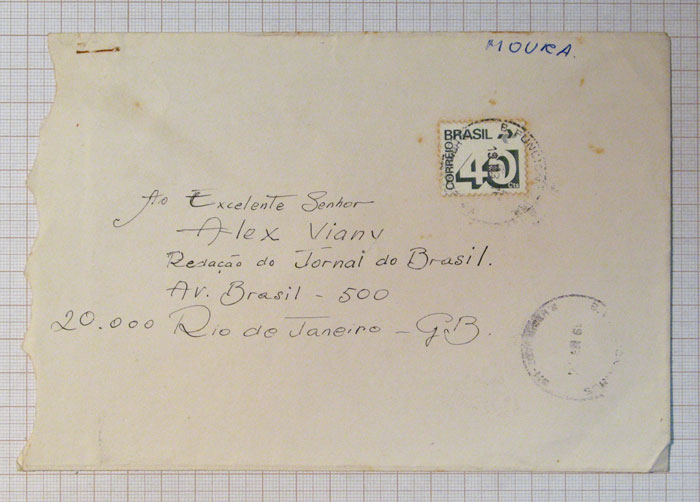 MOURA.
BRASIL
CORREIO
40
Ao Excelente Senhor
Alex Vianv
Redação do Jornal do Brasil.
Av. Brasil - 500
20.000 Rio de Janeiro - GB.